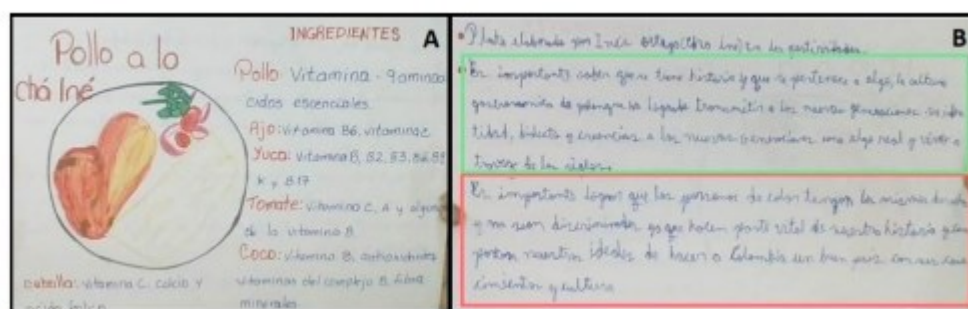 Pollo a lo
chá Iné
INGREDIENTES
A
Pollo: Vitamina - 9 amino
cidos escenciales
Ajo: Vitamina B6, vitamina C
Yuca: Vitamina B, B2, B3,
K y B17
Tomate: Vitamina C, A y algun
de la vitamina B
Coco: Vitamina B, antioxidantes
vitaminas del complejo B, fibra
minerales
cebolla: vitamina C, calcio y
B
Plato elaborado por Inés en las festividades.
Es importante saber que se tiene historia y que se pertenece a algo, la cultura
gastronomica de palenque ha logrado transmitir a las nuevas generaciones su iden
tidad, dialecto y creencias a las nuevas generaciones como algo real y vivo a
traves de los siglos.
Es importante lograr que las personas de color tengan los mismos derechos
y no sean discriminados ya que hacen parte vital de nuestra historia y
nuestros ideales de hacer a Colombia un buen pais con sus cono
cimientos y cultura